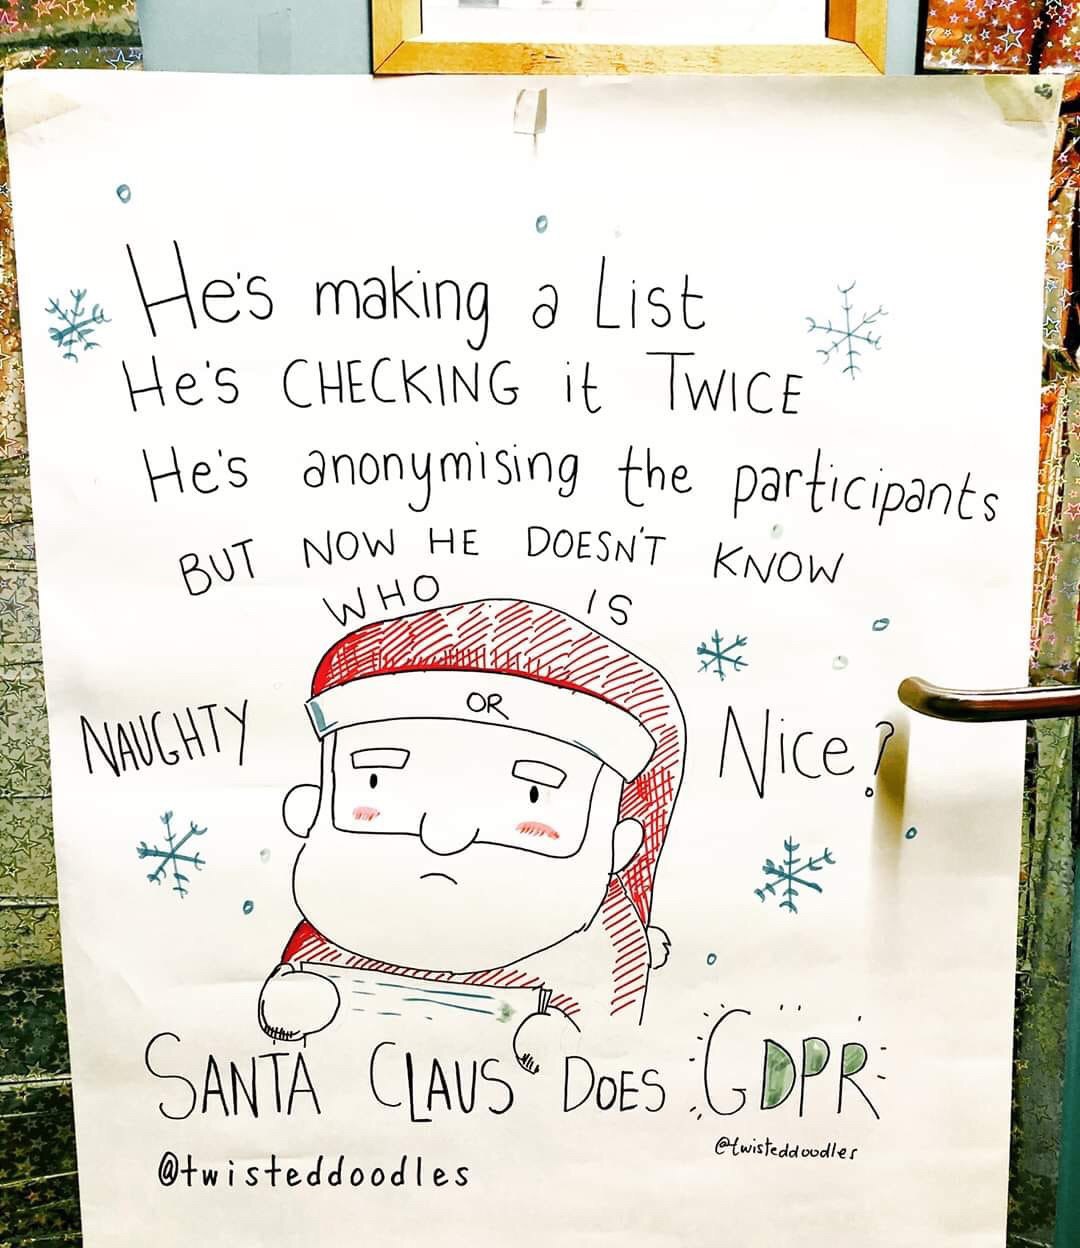 He's making a List
He's CHECKING it TWICE
He's anonymising the participants
BUT NOW HE DOESN'T KNOW
WHO IS
NAUGHTY OR Nice?
SANTA CLAUS DOES GDPR
@twisteddoodles
@twisteddoodles